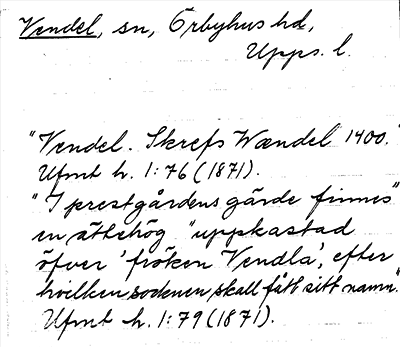 Vendel, sn, Örbyhus hd,
Upps. l.
"Vendel. Skrefs Wændel 1400."
Ufmt h. 1:76 (1871).
"I prestgårdens gärde finnes"
en ättehög "uppkastad
öfver 'fröken Vendla', efter
hvilken socknen skall fått sitt namn."
Ufmt h. 1:79 (1871).